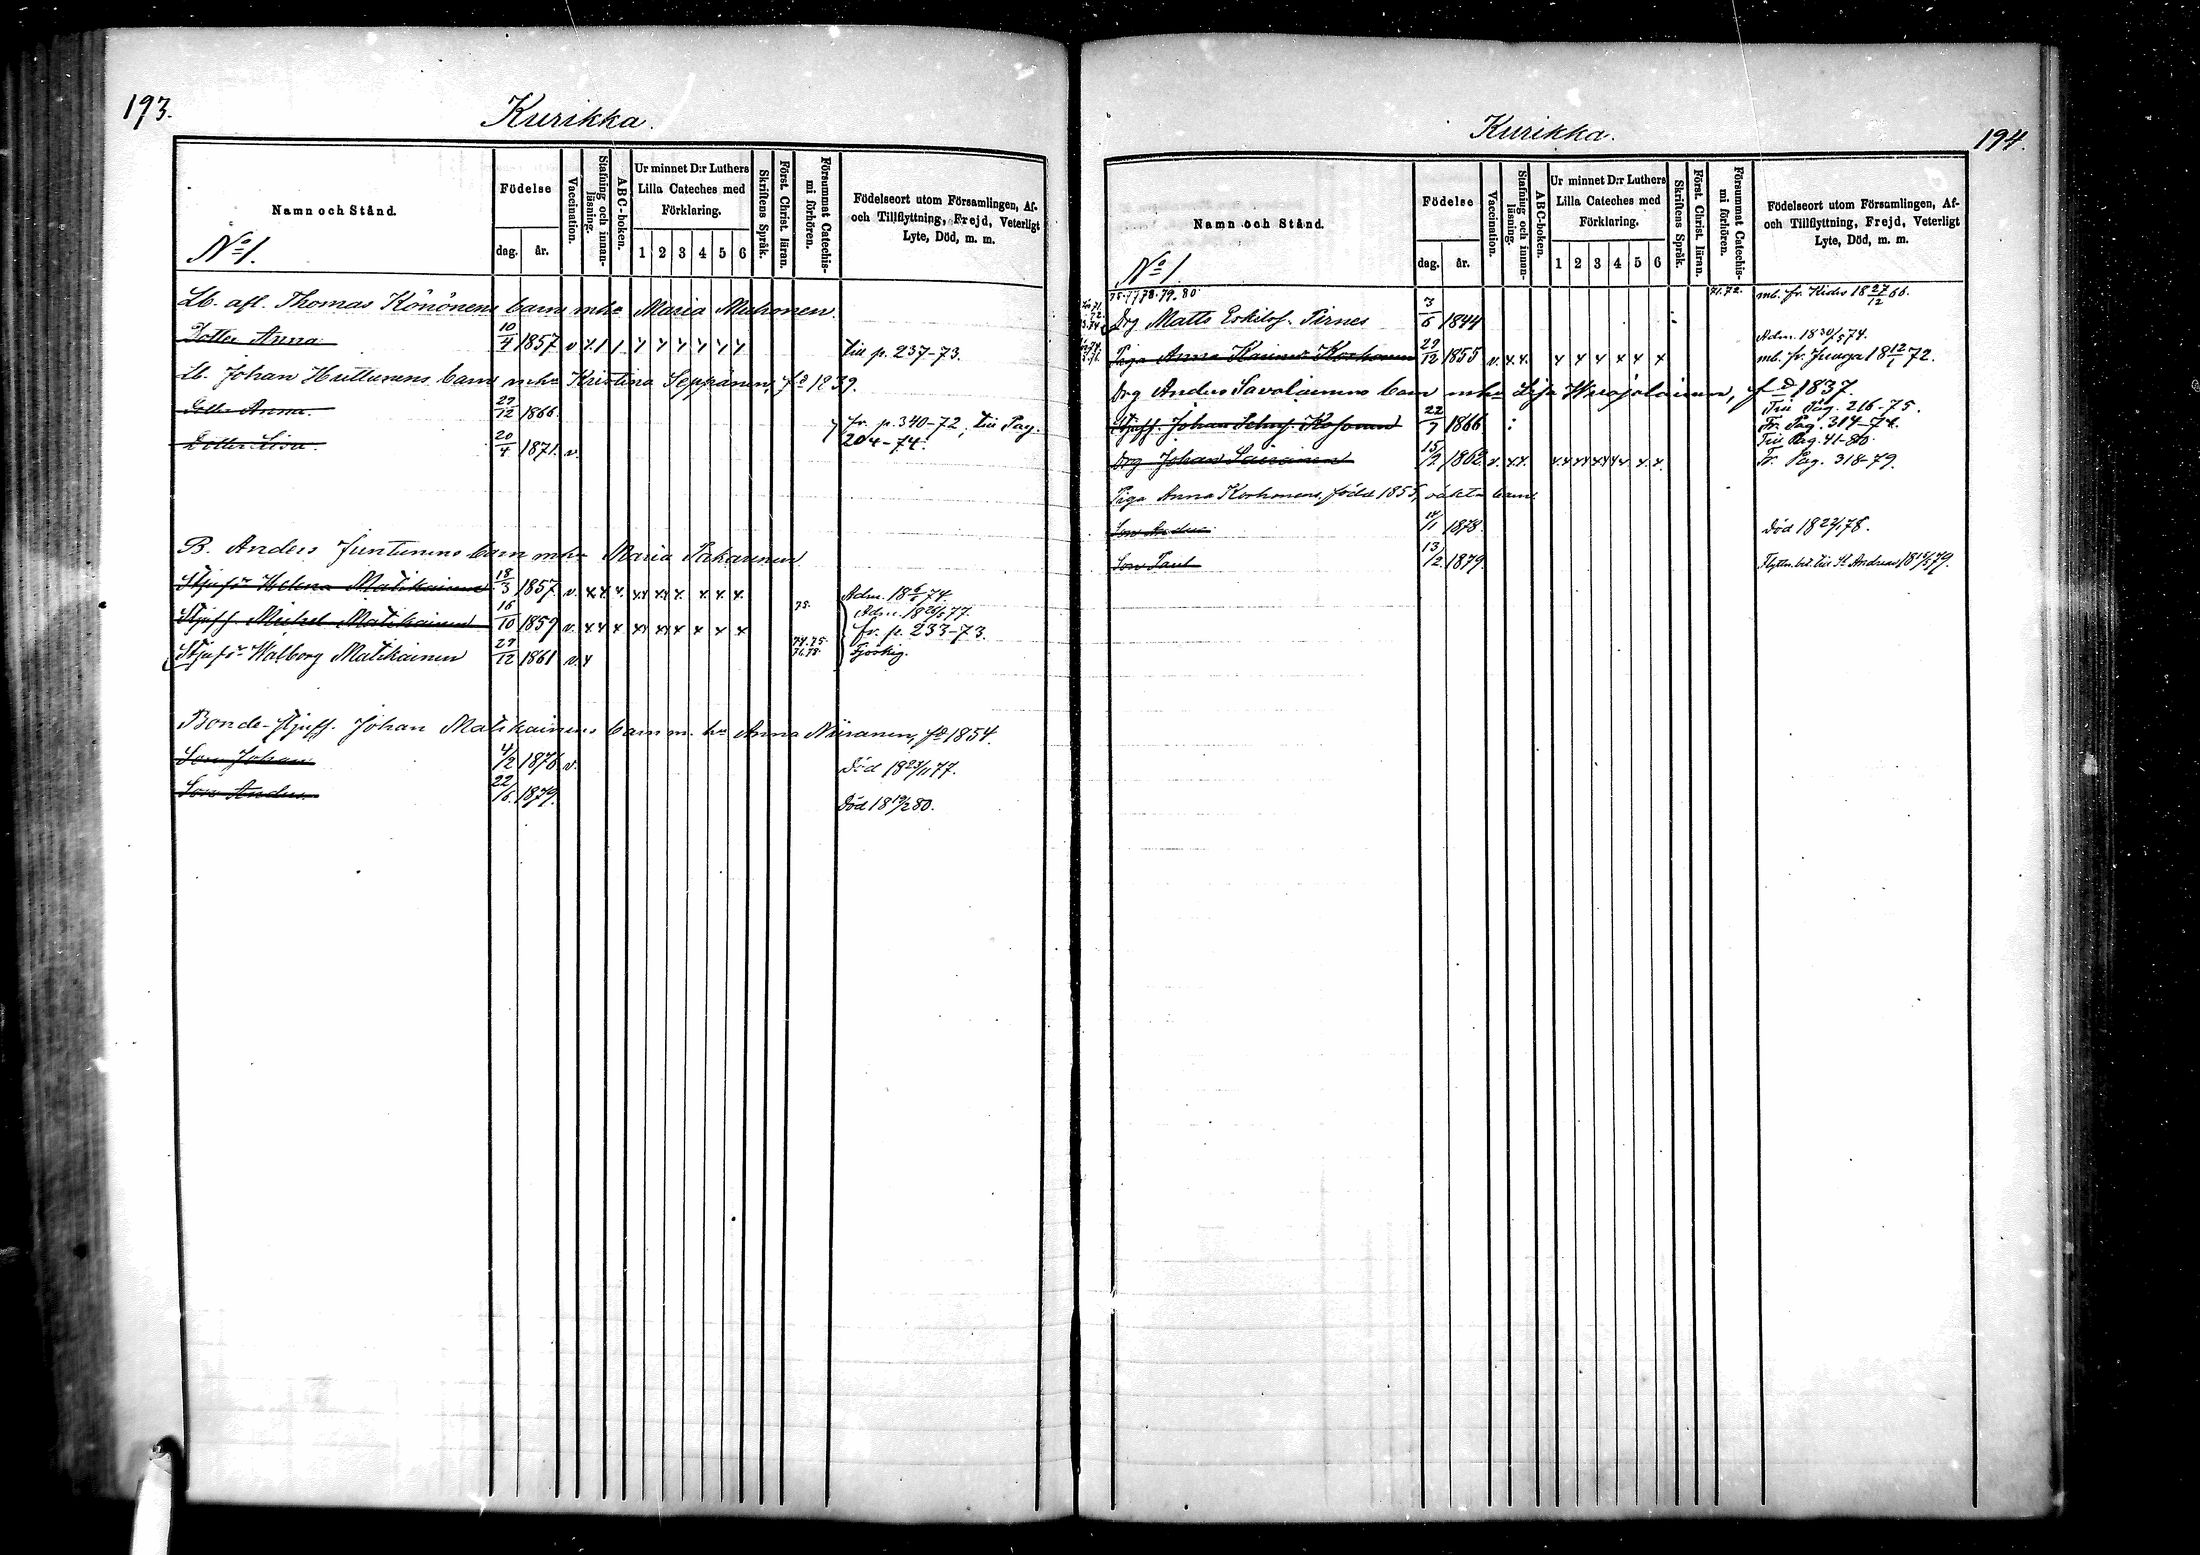 193.
Kurikka.
Namn och Stånd.
Födelse
dag. år.
Vaccination.
Stafning och innanläsning.
ABC-boken.
Ur minnet D:r Luthers Lilla Cateches med Förklaring.
1 2 3 4 5 6
Skriftens Språk.
Först. Christ. läran.
Försummat Catechismi förhören.
Födelseort utom Församlingen, Af- och Tillflyttning, Frejd, Veterligt Lyte, Död, m. m.
No 1.
Lb. afl. Thomas Könönens barn mhu Maria Muhonen.
Dotter Anna 10/4 1857 v till p. 237-73.
Lb. Johan Huttunens barn mhu Kristina Seppänen, fd 1839.
Dotter Anna. 27/12 1866. fr. p. 340-72, till Pag.
Dotter Lisa. 20/4 1871. v. 204-74.
B. Anders Juntunens barn mhu Maria Pakarinen
Styfdr Helena Matikainen 18/3 1857. v. Adm. 18 6/6 74.
Styfs. Michel Matikainen 16/10 1859 v. 75. Adm. 18 20/5 77.
fr. p. 233-73.
Styfdr Walborg Matikainen 27/12 1861 v. 74.75. 76.78. Sjuklig.
Bonde-styfs. Johan Matikainens barn m. hu Anna Niiranen, fd 1854.
Son Johan 4/2 1876 v. Död 18 23/11 77.
Son Anders 22/6 1879. Död 18 19/2 80.
194.
Kurikka.
Namn och Stånd.
Födelse
dag. år.
Vaccination.
Stafning och innanläsning.
ABC-boken.
Ur minnet D:r Luthers Lilla Cateches med Förklaring.
1 2 3 4 5 6
Skriftens Språk.
Först. Christ. läran.
Försummat Catechismi förhören.
Födelseort utom Församlingen, Af- och Tillflyttning, Frejd, Veterligt Lyte, Död, m. m.
No 1.
75. 77. 78. 79. 80. 71. 72. mb. fr. Kides 18 27/12 66.
Drg Matts Eskilsf. Pirnes 3/6 1844
Adm. 18 30/5 74.
Piga Anna Korhonen 29/12 1855 v. mb. fr. Juuga 18 12/1 72.
Drg Anders Savolainens barn mhu Lisa fd 1837.
Till Pag. 216-75.
Styfs. Johan 22/7 1866 Fr. Pag. 314-74.
Till Pag. 41-80.
Drg Johan Sairanen 15/2 1862 v. Fr. Pag. 318-79.
Piga Anna Korhonens, född 1855, oäkta barn
Son Anders 14/1 1878. Död 18 22/1 78.
Son Paul 13/2 1879. Flyttn. bet. till St Andreas 18 15/5 79.